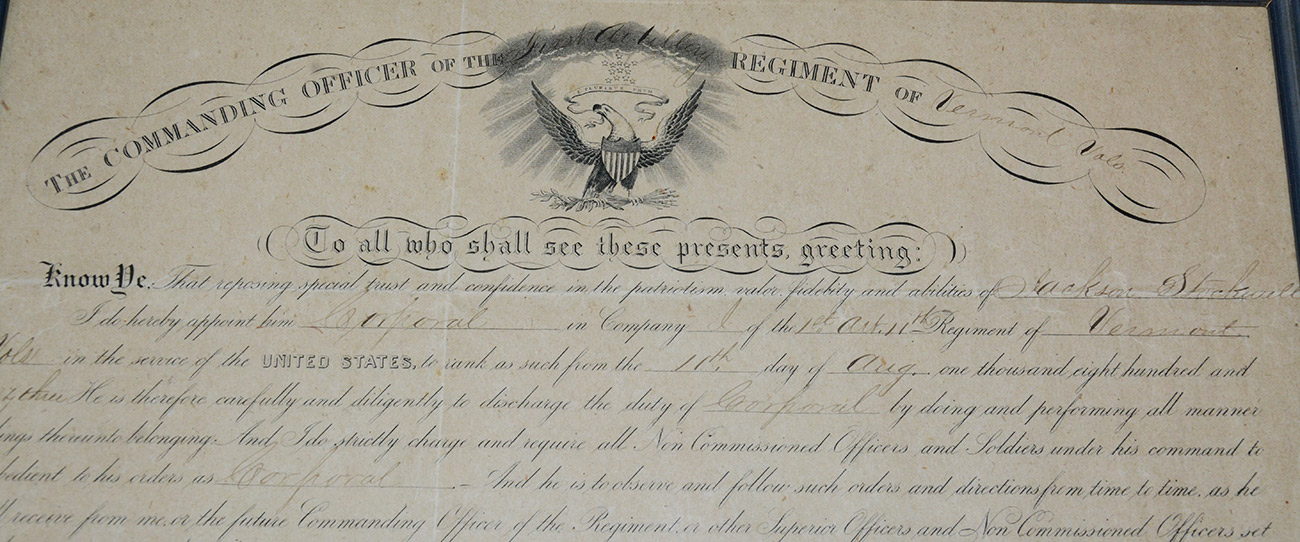 THE COMMANDING OFFICER OF THE First Artillery REGIMENT OF Vermont Vols.
E PLURIBUS UNUM
To all who shall see these presents, greeting:
Know Ye, That reposing special trust and confidence in the patriotism, valor, fidelity and abilities of Jackson Stockwell
I do hereby appoint him Corporal in Company I of the 1st Art. 11th Regiment of Vermont
Vols in the service of the UNITED STATES, to rank as such from the 11th day of Aug. one thousand eight hundred and
three He is therefore carefully and diligently to discharge the duty of Corporal by doing and performing all manner
ings thereunto belonging. And I do strictly charge and require all Non Commissioned Officers and Soldiers under his command to
bedient to his orders as Corporal. And he is to observe and follow such orders and directions from time to time, as he
ll receive from me, or the future Commanding Officer of the Regiment, or other Superior Officers and Non Commissioned Officers set